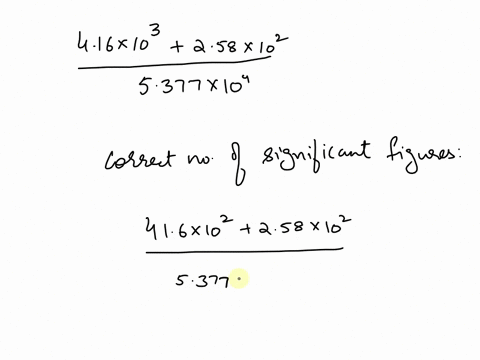 4.16×10³ + 2.58×10²
5.377×10⁴
correct no. of significant figures:
41.6×10² + 2.58×10²
5.377